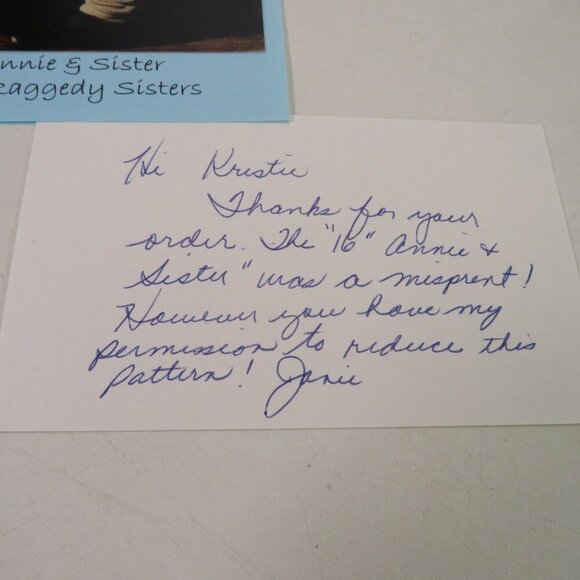 nnie & Sister
Raggedy Sisters
Hi Kristie
Thanks for your
order. The "16" Annie &
Sister" was a misprent!
However you have my
permission to reduce this
pattern! Janie